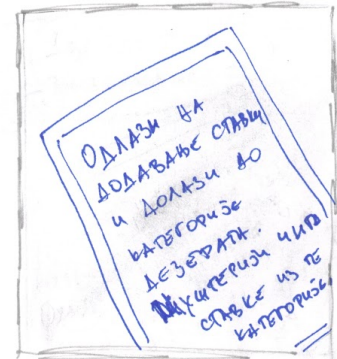 Одлази на
додавање ставки
и долази до
категорије
дезерата.
Муштерији чита
ставке из те
категорије.